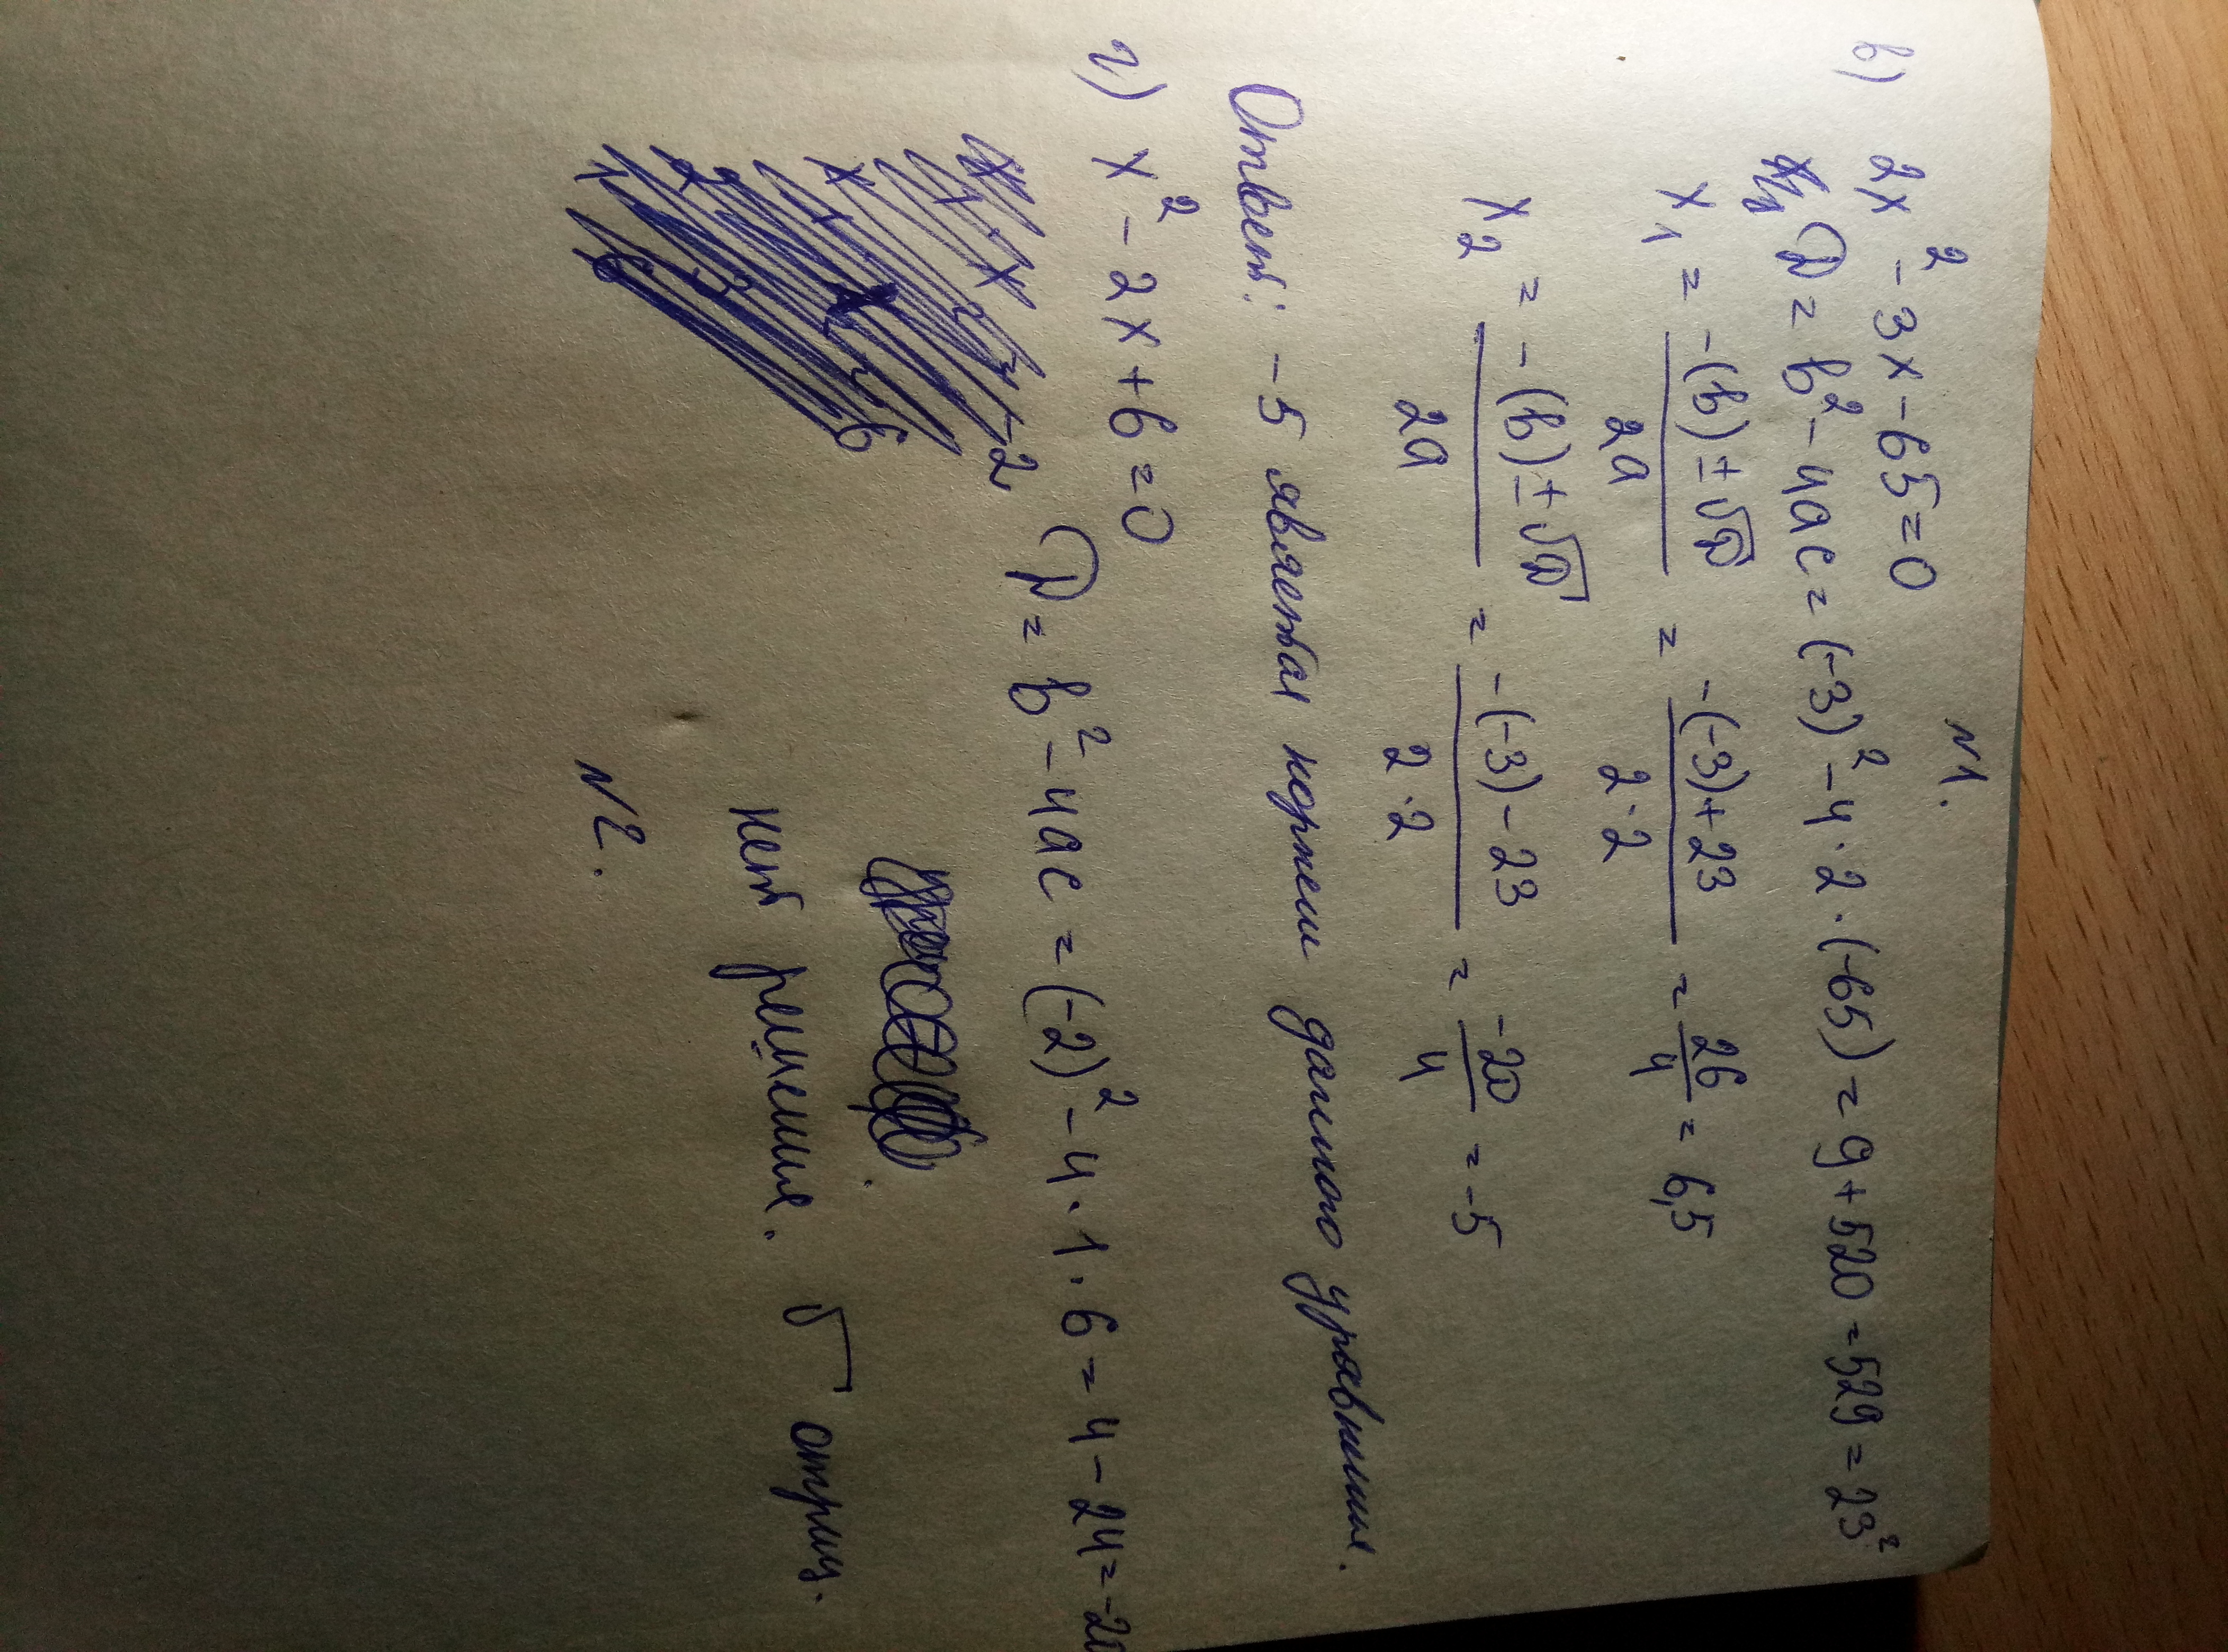 N1.
в) 2x² - 3x - 65 = 0
D = b² - 4ac = (-3)² - 4 · 2 · (-65) = 9 + 520 = 529 = 23²
x₁ = -(b) ± √D / 2a = -(-3) + 23 / 2 · 2 = 26 / 4 = 6,5
x₂ = -(b) ± √D / 2a = -(-3) - 23 / 2 · 2 = -20 / 4 = -5
Ответ: -5 является корнем данного уравнения.
г) x² - 2x + 6 = 0
D = b² - 4ac = (-2)² - 4 · 1 · 6 = 4 - 24 = -20
нет решения. √ отриц.
N2.